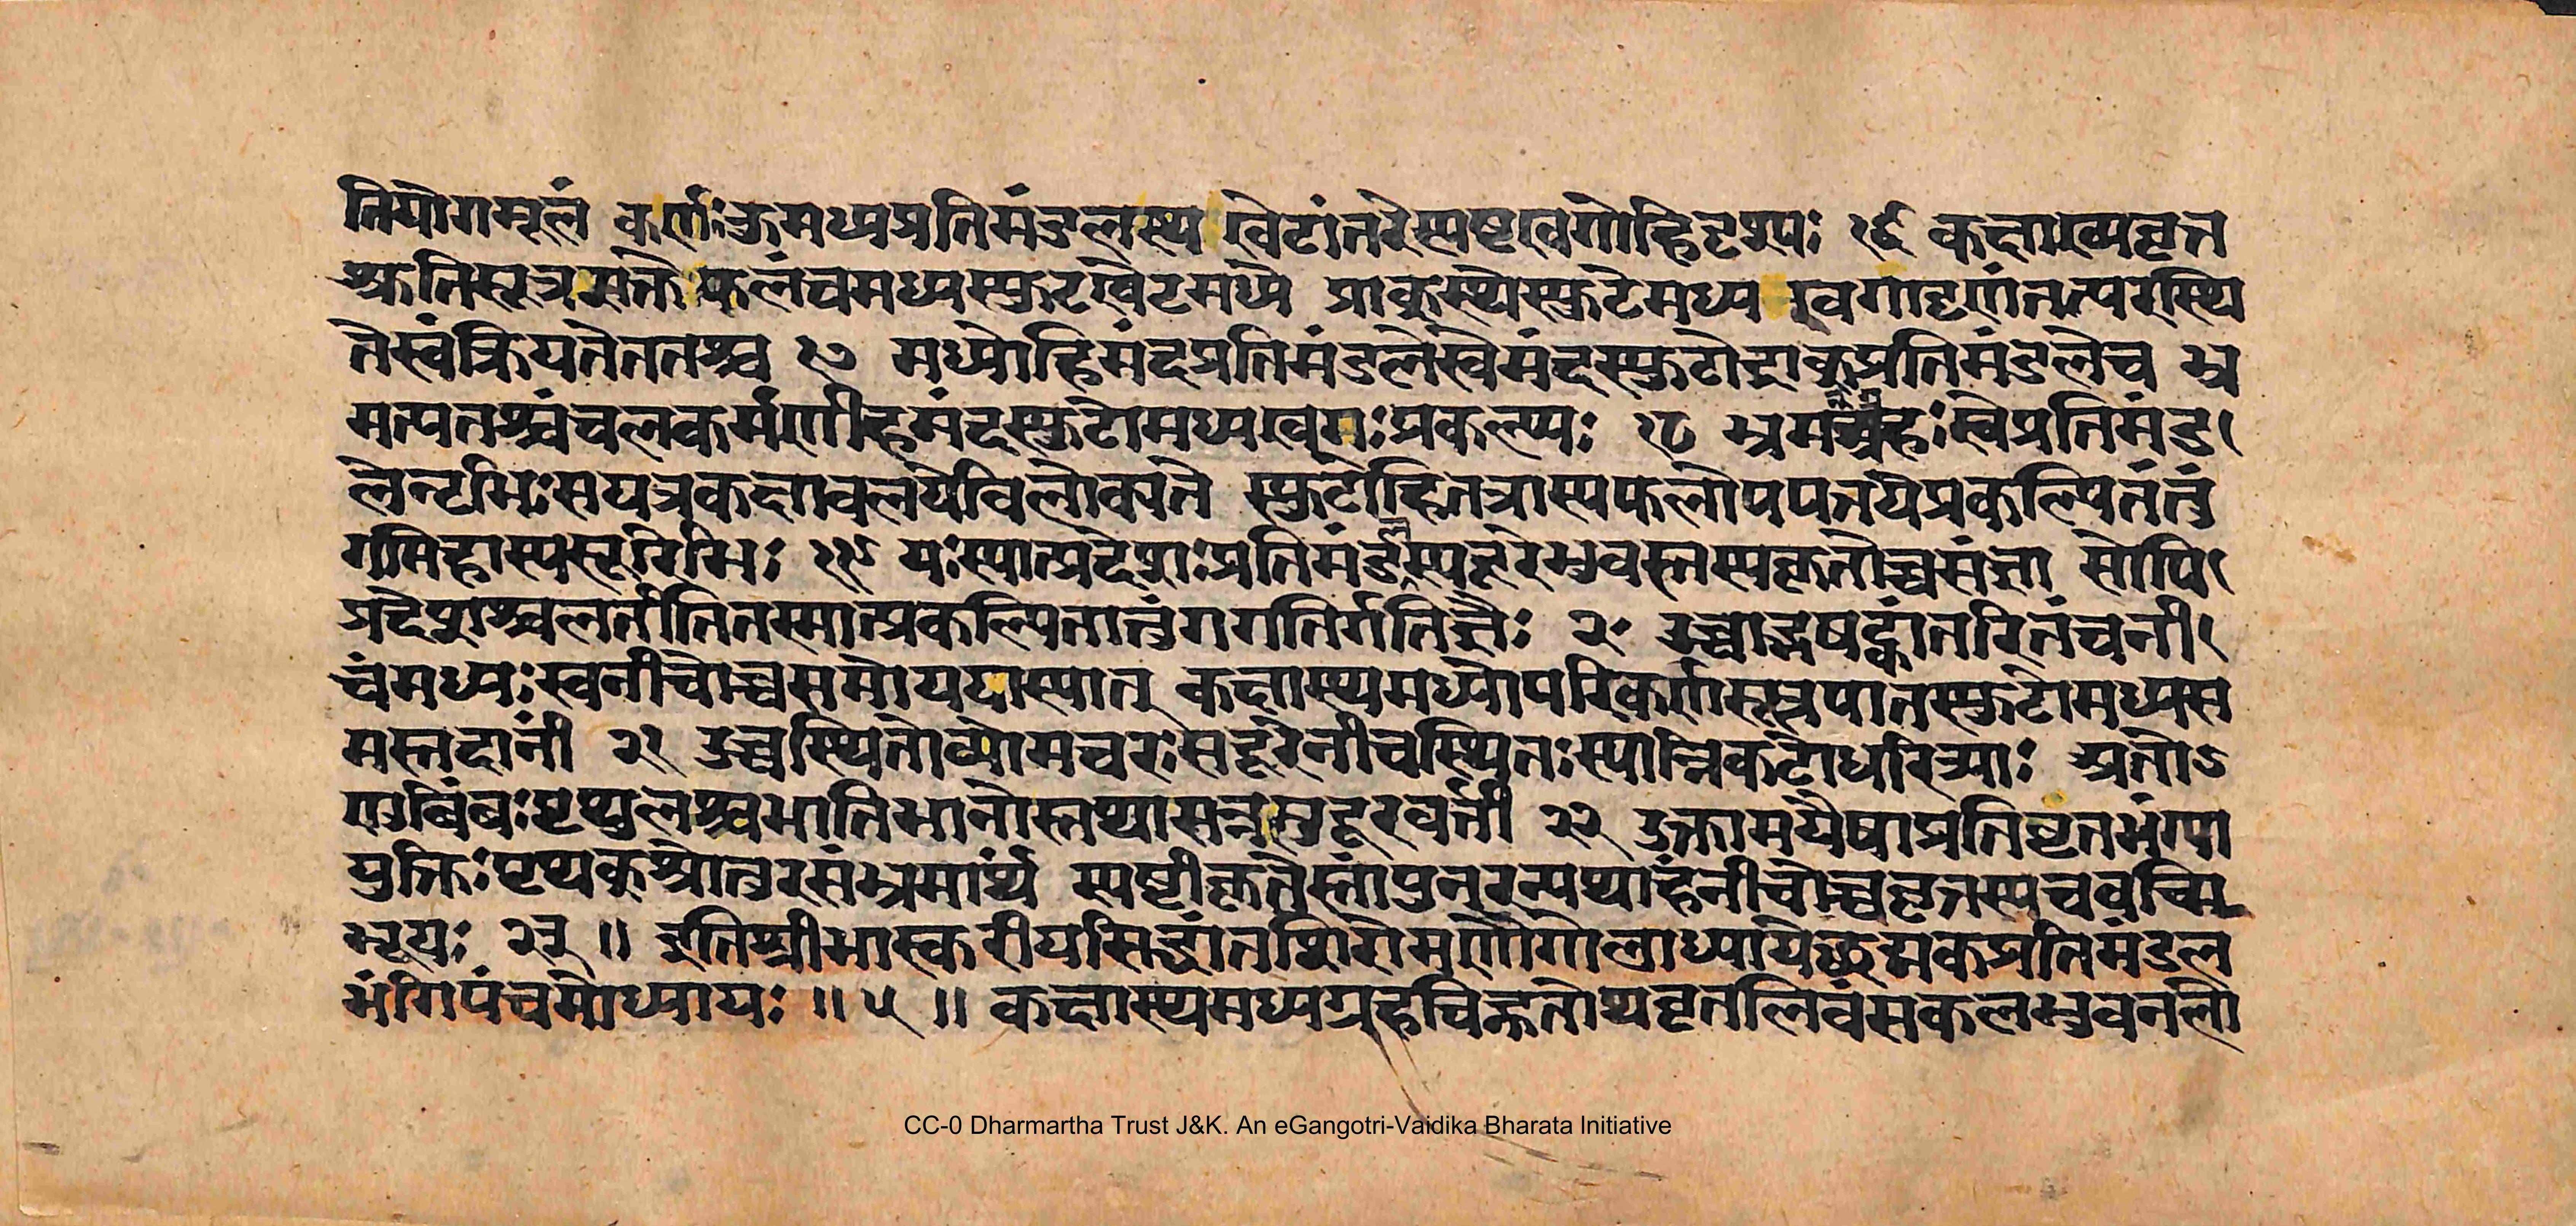 तियोगमूलं कर्णः कुमध्यप्रतिमंडलस्थ खेटांतरेस्पष्टखगोहिदृश्यः १६ कक्षाख्यवृत्त
श्रुतिसूत्रसक्ते फलंचमध्यस्फुटखेटमध्यं प्राक्स्थेस्फुटेमध्य खगादृणंतत्परस्थि
तेस्वंक्रियतेततश्च १७ मध्योहिमंदप्रतिमंडलेस्वेमंदस्फुटोद्राक्प्रतिमंडलेच भ्र
मत्यतश्चंचलकर्मणीहमंदस्फुटोमध्यखगः प्रकल्प्यः १८ भ्रमन्ग्रहः स्वेप्रतिमंड
लेनृभिः सयत्रकक्षावलयेविलोक्यते स्फुटोहितत्रास्यफलोपपत्तयेप्रकल्पितंतुं
गमिहास्यसूरिभिः १९ यः स्यात्प्रदेशः प्रतिमंडलस्यदूरेभुवस्तस्यकृतोच्चसंज्ञा सोपि
प्रदेशश्चलतीतितस्मात्प्रकल्पितातुंगगतिर्गतिज्ञैः २० उच्चाद्भषट्कांतरितंचनी
चंमध्यः स्वनीचोच्चसमोयदास्यात् कक्षास्थमध्योपरिकर्णसूत्रपातस्फुटोमध्यस
मस्तदानीं २१ उच्चस्थितोव्योमचरः सदूरेनीचस्थितः स्यान्निकटोधरित्र्याः अतोऽ
णुबिंबः पृथुलश्चभातिभानोस्तथासन्नसुदूरवर्त्ती २२ उक्तामयैषाप्रतिवृत्तभंग्या
युक्तिः पृथक्श्रोतुरसंभ्रमार्थं स्पष्टीकृतेस्तांपुनरन्यथाहंनीचोच्चवृत्तस्यचवच्मि
भूयः २३ ॥ इतिश्रीभास्करीयसिद्धांतशिरोमणौगोलाध्यायेछेद्यकप्रतिमंडल
भंगिपंचमोध्यायः ॥ ५ ॥ कक्षास्थमध्यग्रहचिह्नतोथवृत्तंलिखेत्सकल
CC-0 Dharmartha Trust J&K. An eGangotri-Vaidika Bharata Initiative